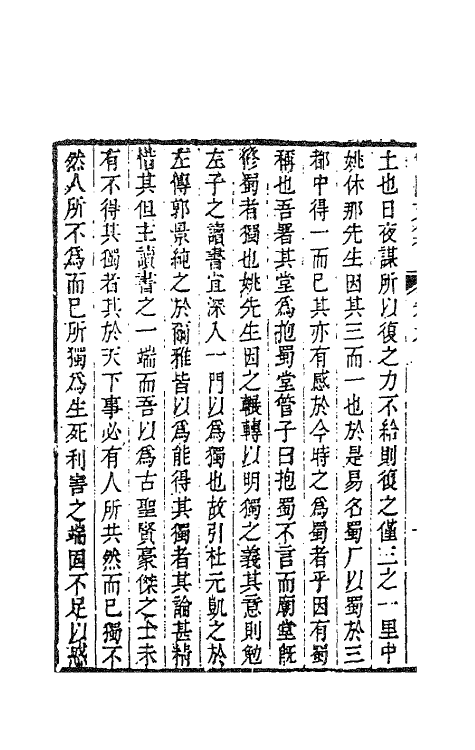 土也日夜謀所以復之力不給則復之僅三之一里中
姚休那先生因其三而一也於是易名蜀厂以蜀於三
都中得一而已其亦有感於今時之為蜀者乎因有蜀
稱也吾署其堂為抱蜀堂管子曰抱蜀不言而廟堂旣
修蜀者獨也姚先生因之輾轉以明獨之義其意則勉
左子之讀書宜深入一門以為獨也故引杜元凱之於
左傳郭景純之於爾雅皆以為能得其獨者其論甚精
惜其但主讀書之一端而吾以為古聖賢豪傑之士未
有不得其獨者其於天下事必有人所共然而已獨不
然人所不為而已所獨為生死利害之端固不足以惑